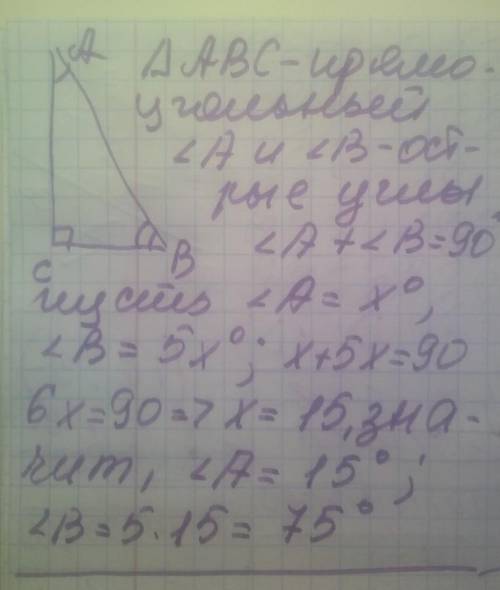 A
ΔABC - прямо-
угольный
∠A и ∠B - ост-
рые углы
∠A + ∠B = 90°
C
B
пусть ∠A = x°,
∠B = 5x°; x+5x=90
6x=90 => x = 15, зна-
чит, ∠A = 15°;
∠B = 5·15 = 75°